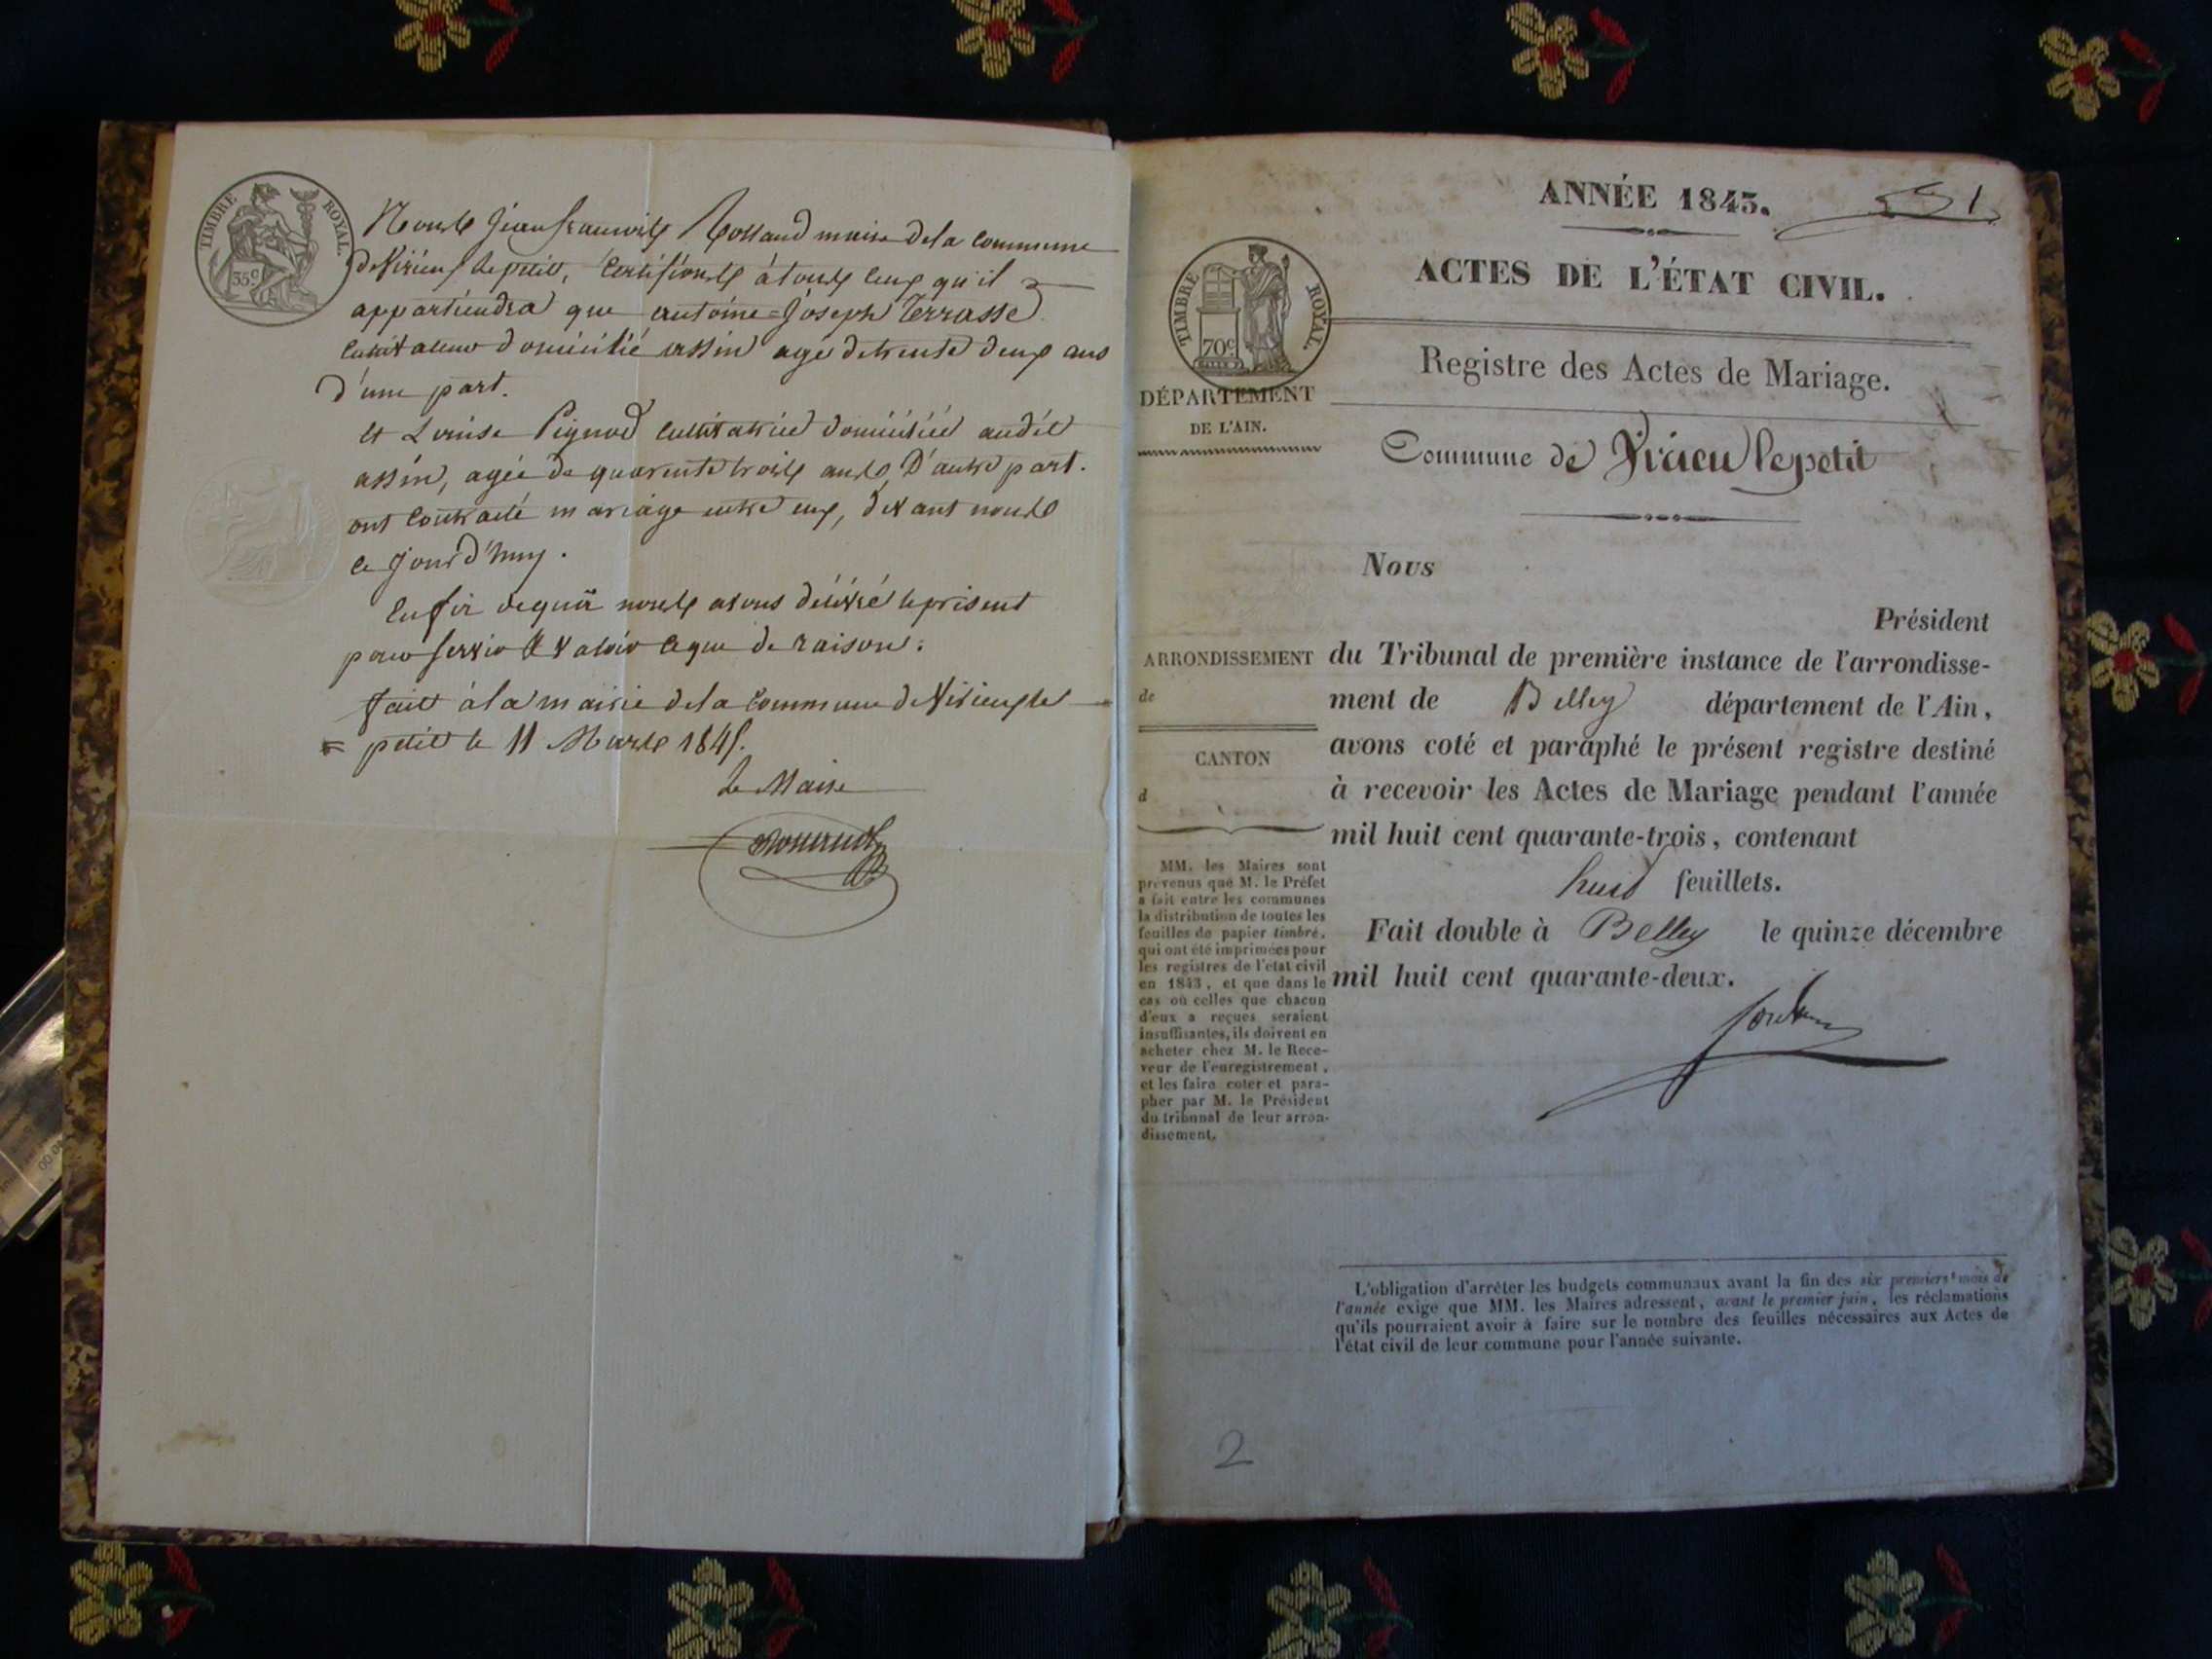 TIMBRE ROYAL.
35c
Nous Jean francois Rolland maire de la commune
de Virieu le petit, Certifions à tous ceux qu'il
appartiendra que antoine=Joseph Terrasse
Cultivateur domicilié assin agé de trente deux ans
d'une part.
et Louise Pignod Cultivatrice domiciliée audit
assin, agée de quarente trois ans, D'autre part.
ont Contracté mariage entre eux, devant nous
ce Jourd'huy.
En foi de quoi nous avons délivré le présent
pour servir & valoir ce que de raison.
fait à la mairie de la Commune de Virieu le
= petit le 11 Mars 1845.
Le Maire
ANNÉE 1843.
1
ACTES DE L'ÉTAT CIVIL.
TIMBRE ROYAL.
70c
Registre des Actes de Mariage.
DÉPARTEMENT
DE L'AIN.
Commune de Virieu le petit
Nous
Président
ARRONDISSEMENT
de
CANTON
d
du Tribunal de première instance de l'arrondisse-
ment de Belley département de l'Ain,
avons coté et paraphé le présent registre destiné
à recevoir les Actes de Mariage pendant l'année
mil huit cent quarante-trois, contenant
huit feuillets.
Fait double à Belley le quinze décembre
mil huit cent quarante-deux.
MM. les Maires sont
prévenus que M. le Préfet
a fait entre les communes
la distribution de toutes les
feuilles de papier timbré,
qui ont été imprimées pour
les registres de l'état civil
en 1843, et que dans le
cas où celles que chacun
d'eux a reçues seraient
insuffisantes, ils doivent en
acheter chez M. le Rece-
veur de l'enregistrement,
et les faire coter et para-
pher par M. le Président
du tribunal de leur arron-
dissement.
L'obligation d'arrêter les budgets communaux avant la fin des six premiers mois de
l'année exige que MM. les Maires adressent, avant le premier juin, les réclamations
qu'ils pourraient avoir à faire sur le nombre des feuilles nécessaires aux Actes de
l'état civil de leur commune pour l'année suivante.
2